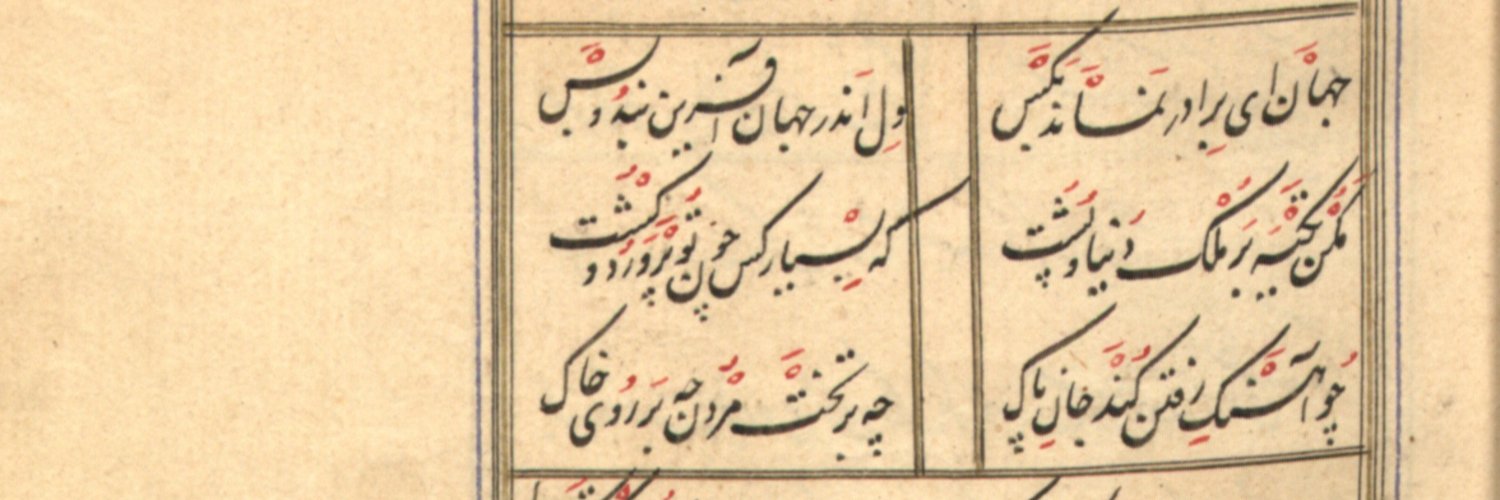 جهان ای برادر نماند بکس
دل اندر جهان آفرین بند و بس
مکن تکیه بر ملک دنیا و پشت
که بسیار کس چون تو پرورد و کشت
چو آهنگ رفتن کند جان پاک
چه بر تخت مردن چه بر روی خاک